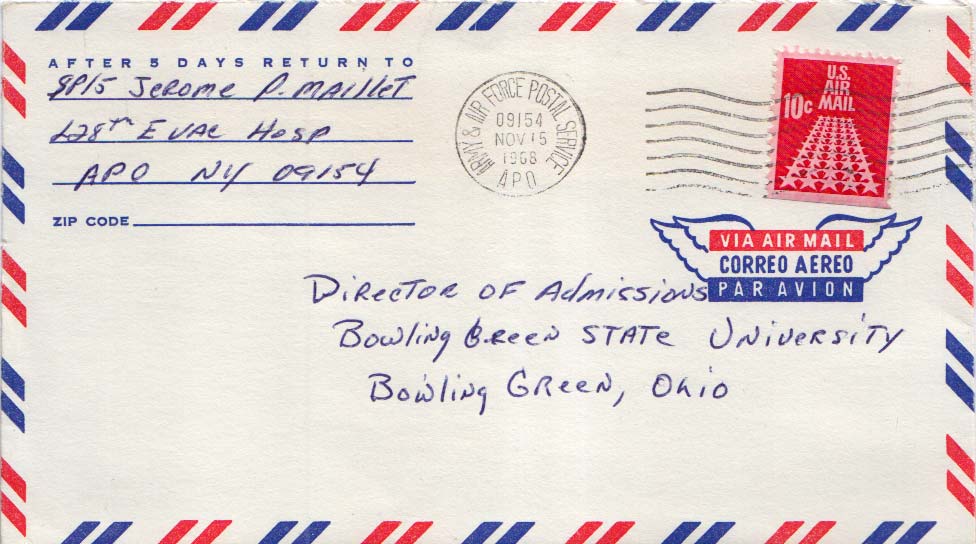 AFTER 5 DAYS RETURN TO
SP/5 Jerome P. Maillet
428th Evac Hosp
APO NY 09154
ZIP CODE
ARMY & AIR FORCE POSTAL SERVICE
09154
NOV 15
1968
APO
U.S.
AIR
10c MAIL
VIA AIR MAIL
CORREO AEREO
PAR AVION
Director of Admissions
Bowling Green State University
Bowling Green, Ohio